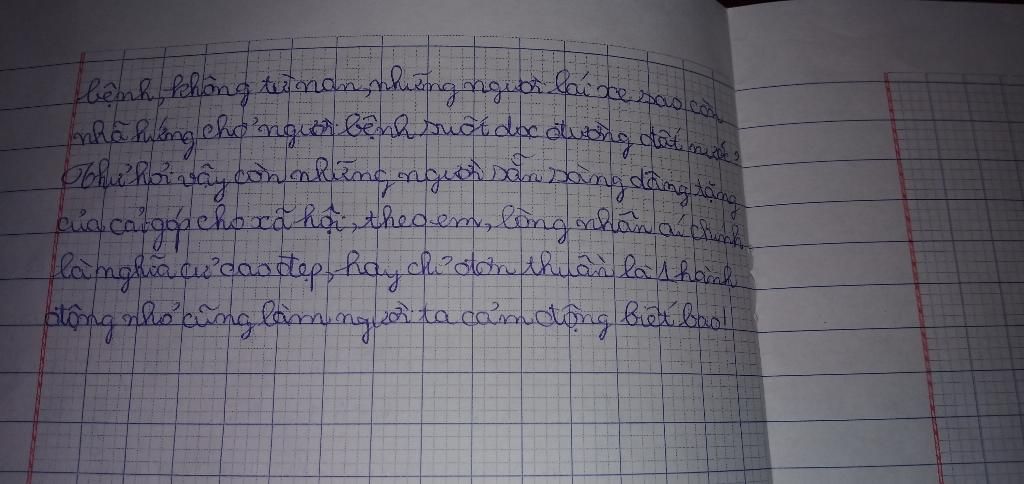 bệnh, không từ nan, những người lái xe sao còn
nhã hứng chở người bệnh suốt dọc đường đất nước,
Thử hỏi vậy còn những người sẵn sàng dâng tặng
của cải góp cho xã hội, theo em, lòng nhân ái chính
là nghĩa cử cao đẹp, hay chỉ đơn thuần là 1 hành
động nhỏ cũng làm người ta cảm động biết bao!!